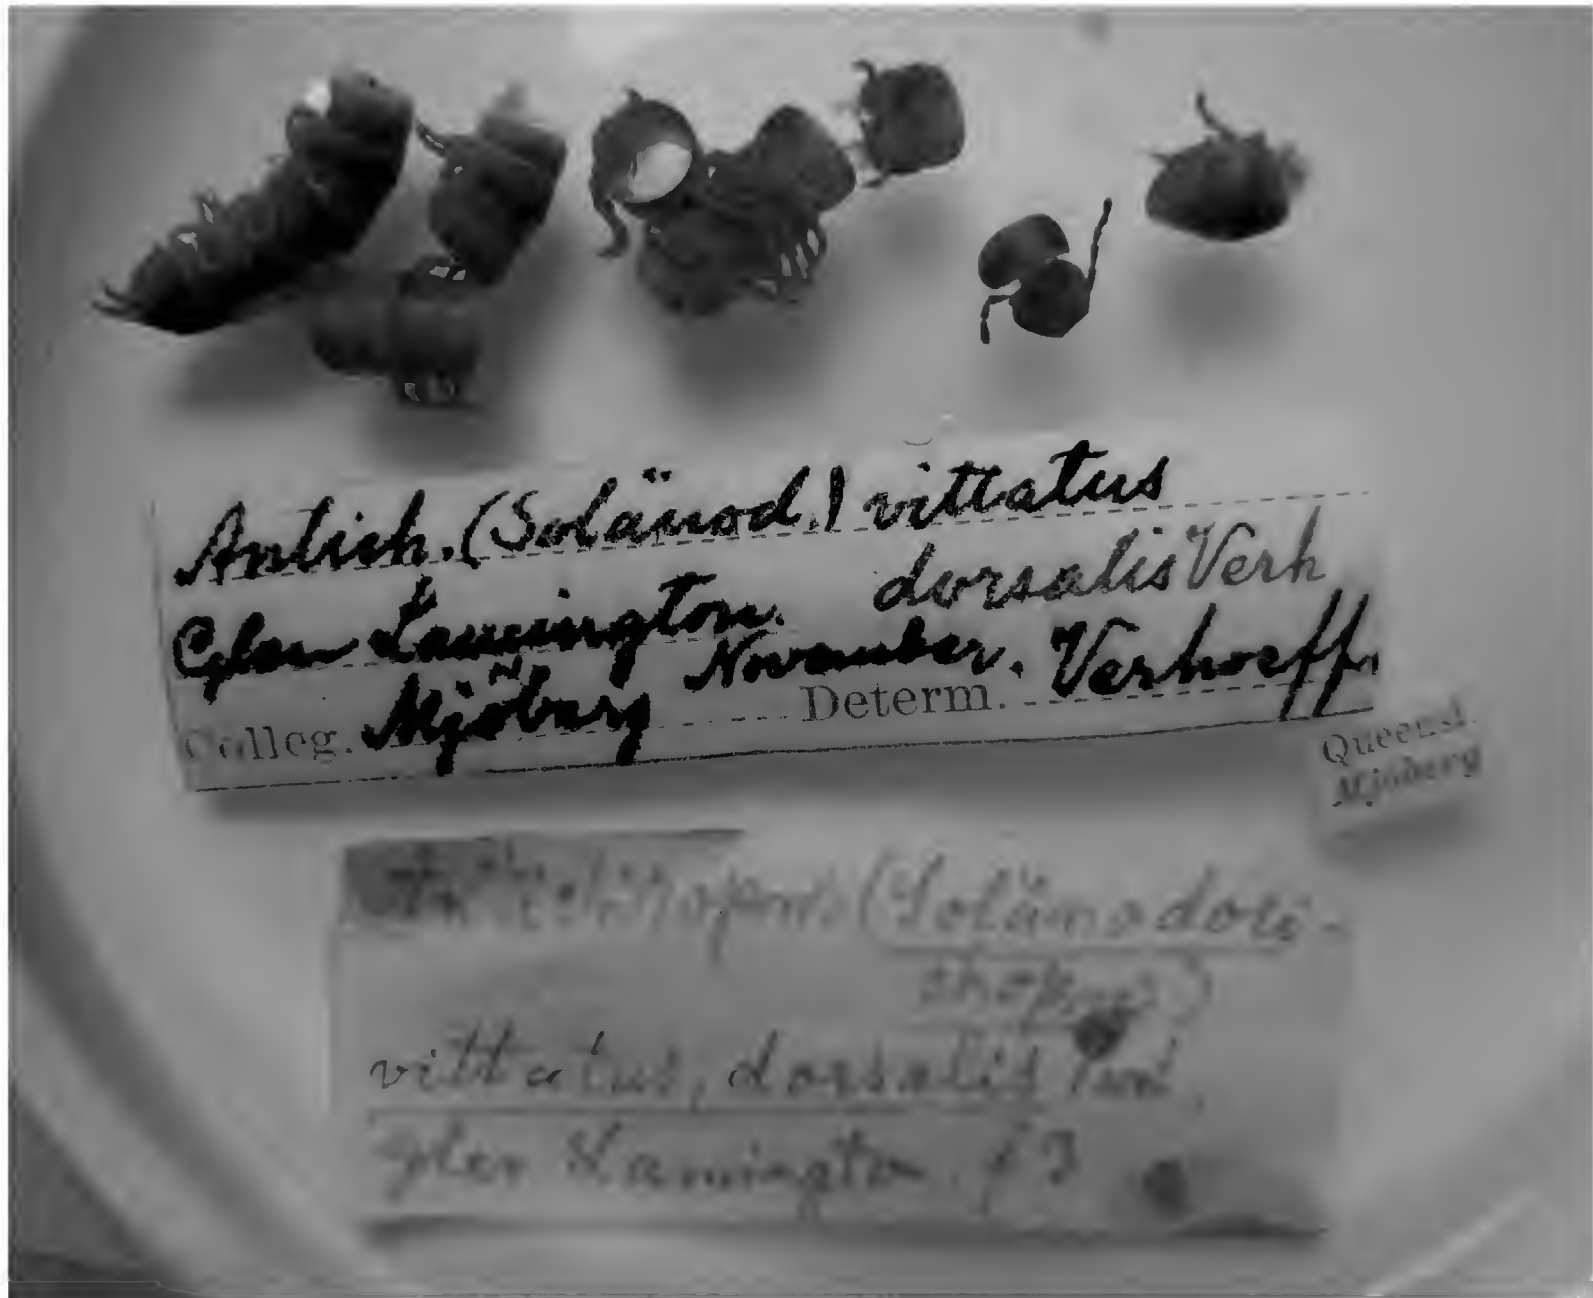 Antich. (Solänod.) vittatus
dorsalis Verh
Glen Lamington.
November.
Colleg. Mjöberg Determ. Verhoeff.
Queensl.
Mjöberg
(Solänodoli-
chopus)
vittatus, dorsalis
glen Lamington.